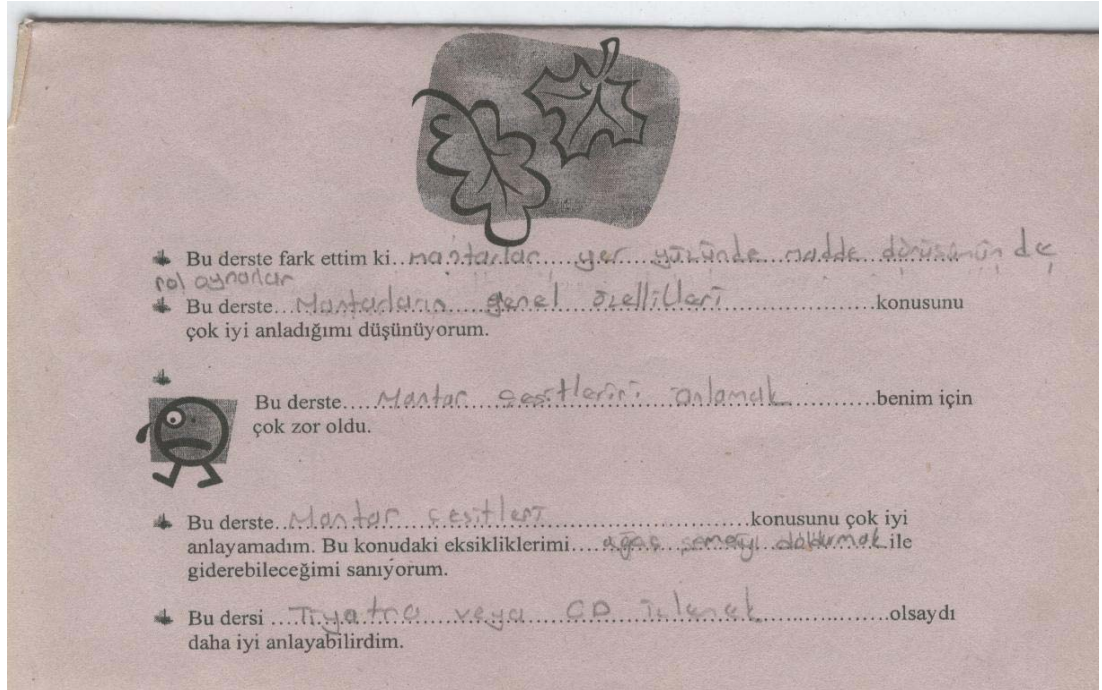 Bu derste fark ettim ki..mantarlar....yer...yüzünde...madde...dönüşümünde
rol oynarlar
Bu derste...Mantarların...genel...özellikleri...konusunu
çok iyi anladığımı düşünüyorum.
Bu derste....Mantar...çeşitlerini...anlamak...benim için
çok zor oldu.
Bu derste..Mantar...çeşitleri...konusunu çok iyi
anlayamadım. Bu konudaki eksikliklerimi....ağaç şemayı doldurmak ile
giderebileceğimi sanıyorum.
Bu dersi ...Tiyatro...veya...CD izlemek...olsaydı
daha iyi anlayabilirdim.